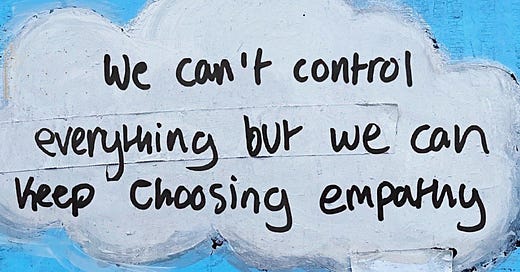 We can't control
everything but we can
keep choosing empathy